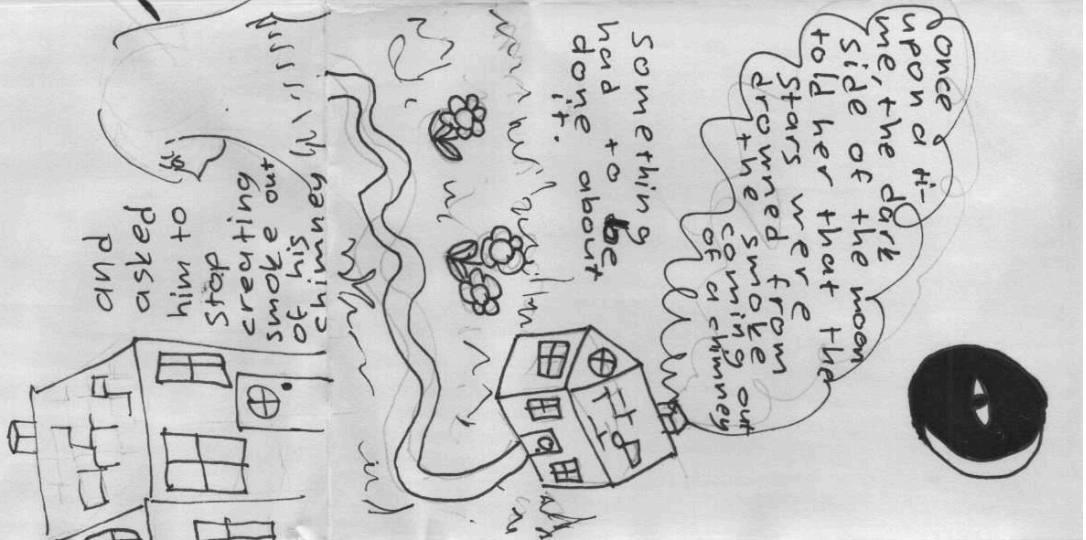 once
upon a ti-
me, the dark
side of the moon
told her that the
stars were
drowned from
the smoke
coming out
of a chimney
Something
had to be
done about
it.
and
asked
him to
stop
creating
smoke out
of his
chimney